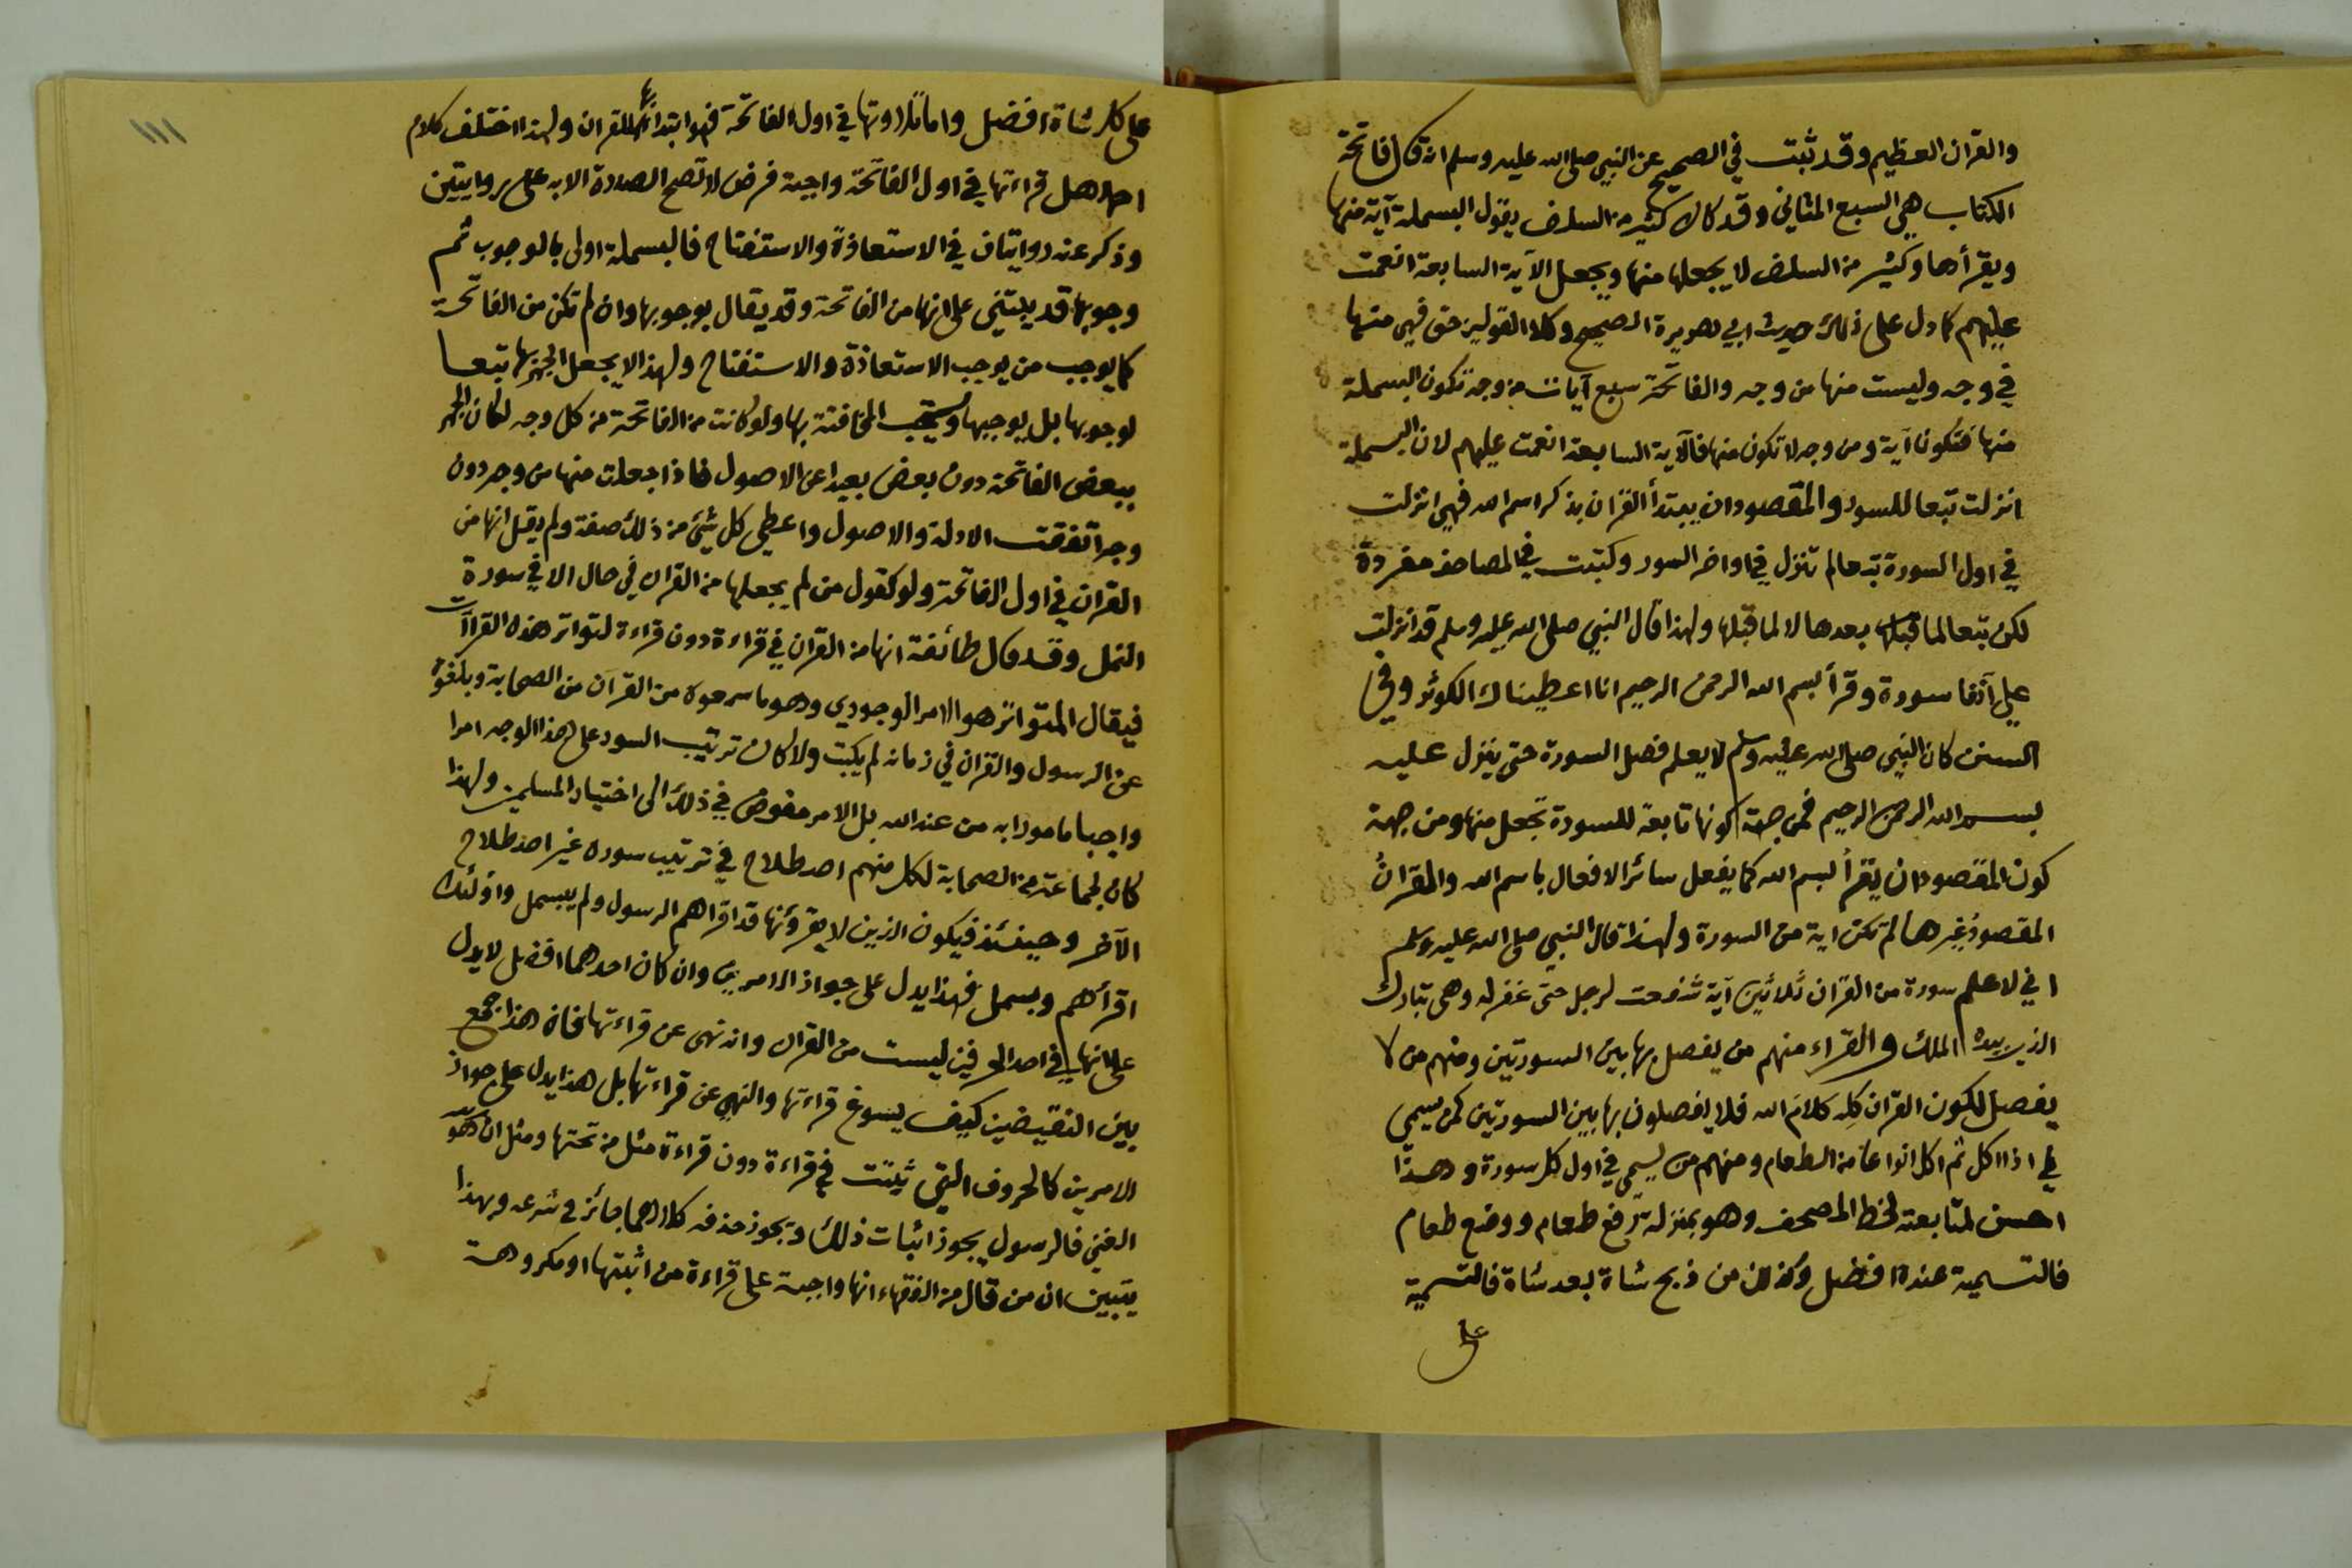 والقران العظيم وقد ثبت في الصحيح عن النبي صلى الله عليه وسلم انه قال فاتحة
الكتاب هي السبع المثاني وقد كان كثير من السلف يقول البسملة آية منها
ويقرأها وكثير من السلف لا يجعلها منها ويجعل الآية السابعة انعمت
عليهم كما دل على ذلك حديث ابي هريرة الصحيح وكلا القولين حق فهي منها
في وجه وليست منها من وجه والفاتحة سبع آيات من وجه تكون البسملة
منها فتكون آية ومن وجه لا تكون منها فالآية السابعة انعمت عليهم لان البسملة
انزلت تبعا للسور والمقصود ان يبتدأ القران بذكر اسم الله فهي انزلت
في اول السورة تبعا لم تنزل في اواخر السور وكتبت في المصاحف مفردة
لكن تبعا لما بعدها لا لما قبلها ولهذا قال النبي صلى الله عليه وسلم قد انزلت
علي آنفا سورة وقرأ بسم الله الرحمن الرحيم انا اعطيناك الكوثر وفي
السنن كان النبي صلى الله عليه وسلم لا يعلم فصل السورة حتى ينزل عليه
بسم الله الرحمن الرحيم فمن جهة كونها تابعة للسورة تجعل منها ومن جهة
كون المقصود ان يقرأ بسم الله كما يفعل سائر الافعال باسم الله والقرانُ
المقصودُ غيرها لم تكن اية من السورة ولهذا قال النبي صلى الله عليه وسلم
اني لاعلم سورة من القران ثلاثين آية شفعت لرجل حتى غفر له وهى تبارك
الذي بيده الملك والقراء منهم من يفصل بها بين السورتين ومنهم من لا
يفصل لكون القران كله كلام الله فلا يفصلون بها بين السورتين كمن يسمي
اذا اكل ثم اكل انواعا من الطعام ومنهم من يسمي في اول كل سورة وهذا
احسن لمتابعته لخط المصحف وهو بمنزلة رفع طعام ووضع طعام
فالتسمية عنده افضل وكذلك من ذبح شاة بعد شاة فالتسمية
على
١١١
على كل شاة افضل واما تلاوتها في اول الفاتحة فهو ابتداء بها للقران ولهذا اختلف كلام
احمد هل قراءتها في اول الفاتحة واجبة فرض لا تصح الصلاة الا به على روايتين
وذكر عنه روايتان في الاستعاذة والاستفتاح فالبسملة اولى بالوجوب ثم
وجوبها قد يبتنى على انها من الفاتحة وقد يقال بوجوبها وان لم تكن من الفاتحة
كما يوجب من يوجب الاستعاذة والاستفتاح ولهذا لا يجعل الجهر بها تبعا
لوجوبها بل يوجبها ويستحب المخافتة بها ولو كانت من الفاتحة من كل وجه لكان الجهر
ببعض الفاتحة دون بعض بعيدا عن الاصول فاذا جعلت منها من وجه دون
وجه اتفقت الادلة والاصول واعطي كل شيئ من ذلك صفة ولم يقل انها من
القران في اول الفاتحة ولو كقول من لم يجعلها من القران في حال الا في سورة
النمل وقد قال طائفة انها من القران في قراءة دون قراءة لتواتر هذه القراآت
فيقال المتواتر هو الامر الوجودي وهو ما سمعوه من القرآن من الصحابة وبلغوه
عن الرسول والقران في زمانه لم يكتب ولا كان ترتيب السور على هذا الوجه امرا
واجبا مامورا به من عند الله بل الامر مفوض في ذلك الى اختيار المسلمين ولهذا
كان لجماعة من الصحابة لكل منهم اصطلاح في ترتيب سوره غير اصطلاح
الآخر وحينئذ فيكون الذين لا يقرؤنها قد اقراهم الرسول ولم يبسمل واولئك
اقرأهم وبسمل فهذا يدل على جواز الامرين وان كان احدهما افضل لا يدل
على انها في احد الحرفين ليست من القران وانه نهى عن قراءتها فان هذا جمع
بين النقيضين كيف يسوغ قراءتها والنهي عن قراءتها بل هذا يدل على جواز
الامرين كالحروف التي ثبتت في قراءة دون قراءة مثل من تحتها ومثل ان الله هو
الغني فالرسول يجوز اثبات ذلك ويجوز حذفه كلاهما جائز في شرعه وبهذا
يتبين ان من قال من الفقهاء انها واجبة على قراءة من اثبتها او مكروهة